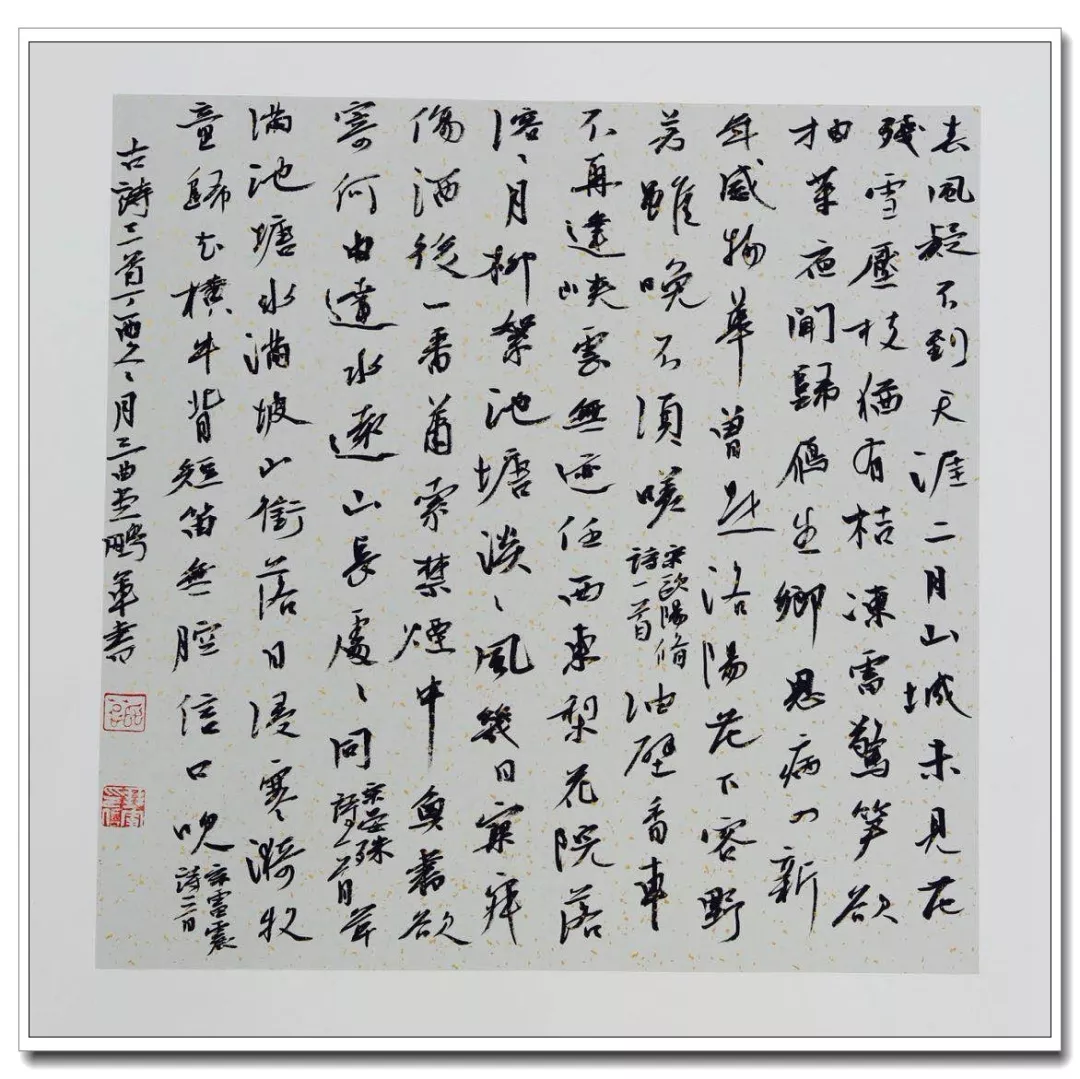 春風疑不到天涯二月山城未見花
殘雪壓枝猶有桔凍雷驚笋欲
抽芽夜聞歸雁生鄉思病入新
年感物華曾是洛陽花下客野
芳雖晚不須嗟宋歐陽脩詩一首油壁香車
不再逢峽雲無迹任西東梨花院落
溶々月柳絮池塘淡々風幾日寂
傷酒後一番蕭索禁煙中魚書欲
寄何由達水遠山長處々同宋晏殊詩一首草
滿池塘水滿坡山銜落日浸寒漪牧
童歸去橫牛背短笛無腔信口吹宋雷震詩一首
古詩三首丁酉月三曲書